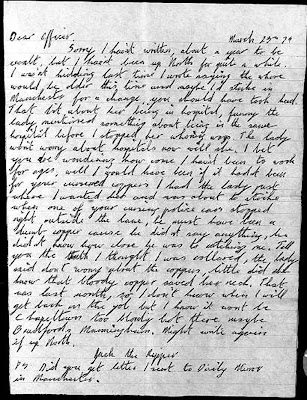 March 23rd 79
Dear Officer,
Sorry I hasn't written, about a year to be
exact, but I hasn't been up North for quite a while.
I wasn't kidding last time I wrote saying the whore
would be older this time and maybe I'd strike in
Manchester for a change, you should have took heed.
That bit about her being in hospital, funny the
lady mentioned something about being in the same
hospital before I stopped her whoring ways. The lady
won't worry about hospitals now will she. I bet
you be wondering how come I hasn't been to work
for ages, well I would have been if it hadnt been
for your cursered coppers I had the lady just
where I wanted her and was about to strike
when one of your cursing police cars stopped
right outside the lane, he must have been a
dumb copper cause he didn't say anything, he
didnt know how close he was to catching me. Tell
you the truth I thought I was collared, the lady
said dont worry about the coppers, little did she
know that bloody copper saved her neck. That
was last month, so I don't know when I will
get back on the job but I know it wont be
Chapeltown too bloody hot there maybe
Bradfords Manningham. Might write again
if up North.
Jack the Ripper
PS Did you get letter I sent to Daily Mirror
in Manchester.